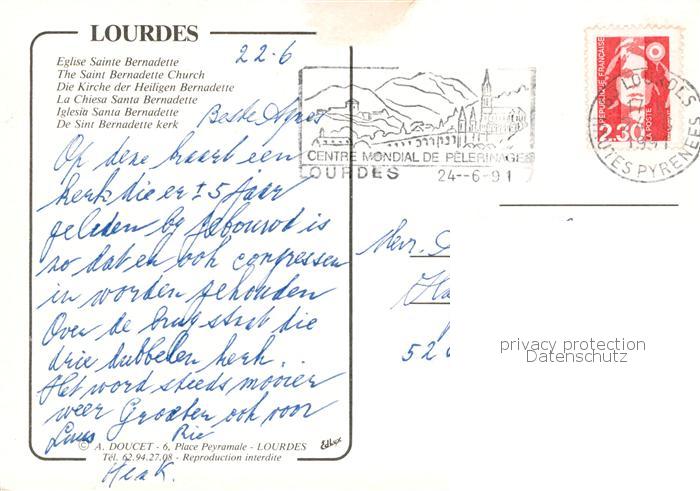 LOURDES
22-6
Eglise Sainte Bernadette
The Saint Bernadette Church
Die Kirche der Heiligen Bernadette
La Chiesa Santa Bernadette
Iglesia Santa Bernadette
De Sint Bernadette kerk
Beste
Op deze kaart een
kerk die er ± 5 Jaar
geleden by gebouwd is
zo dat en ook congressen
in worden gehouden
Over de brug staat die
drie dubbelen kerk..
Het word steeds mooier
weer Groeten ook voor
Rie
Henk.
© A. DOUCET - 6, Place Peyramale - LOURDES
Tél. 62.94.27.08 - Reproduction interdite
CENTRE MONDIAL DE PÈLERINAGES
LOURDES 24--6-91
REPUBLIQUE FRANÇAISE
2,30
LA POSTE
HAUTES PYRENEES
Heer.
52
privacy protection
Datenschutz